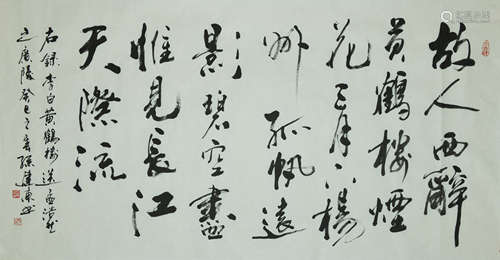 故人西辭
黃鶴樓煙
花三月下楊
州孤帆遠
影碧空盡
惟見長江
天際流
右錄李白黃鶴樓送孟浩然
之廣陵癸巳之春孫建東書